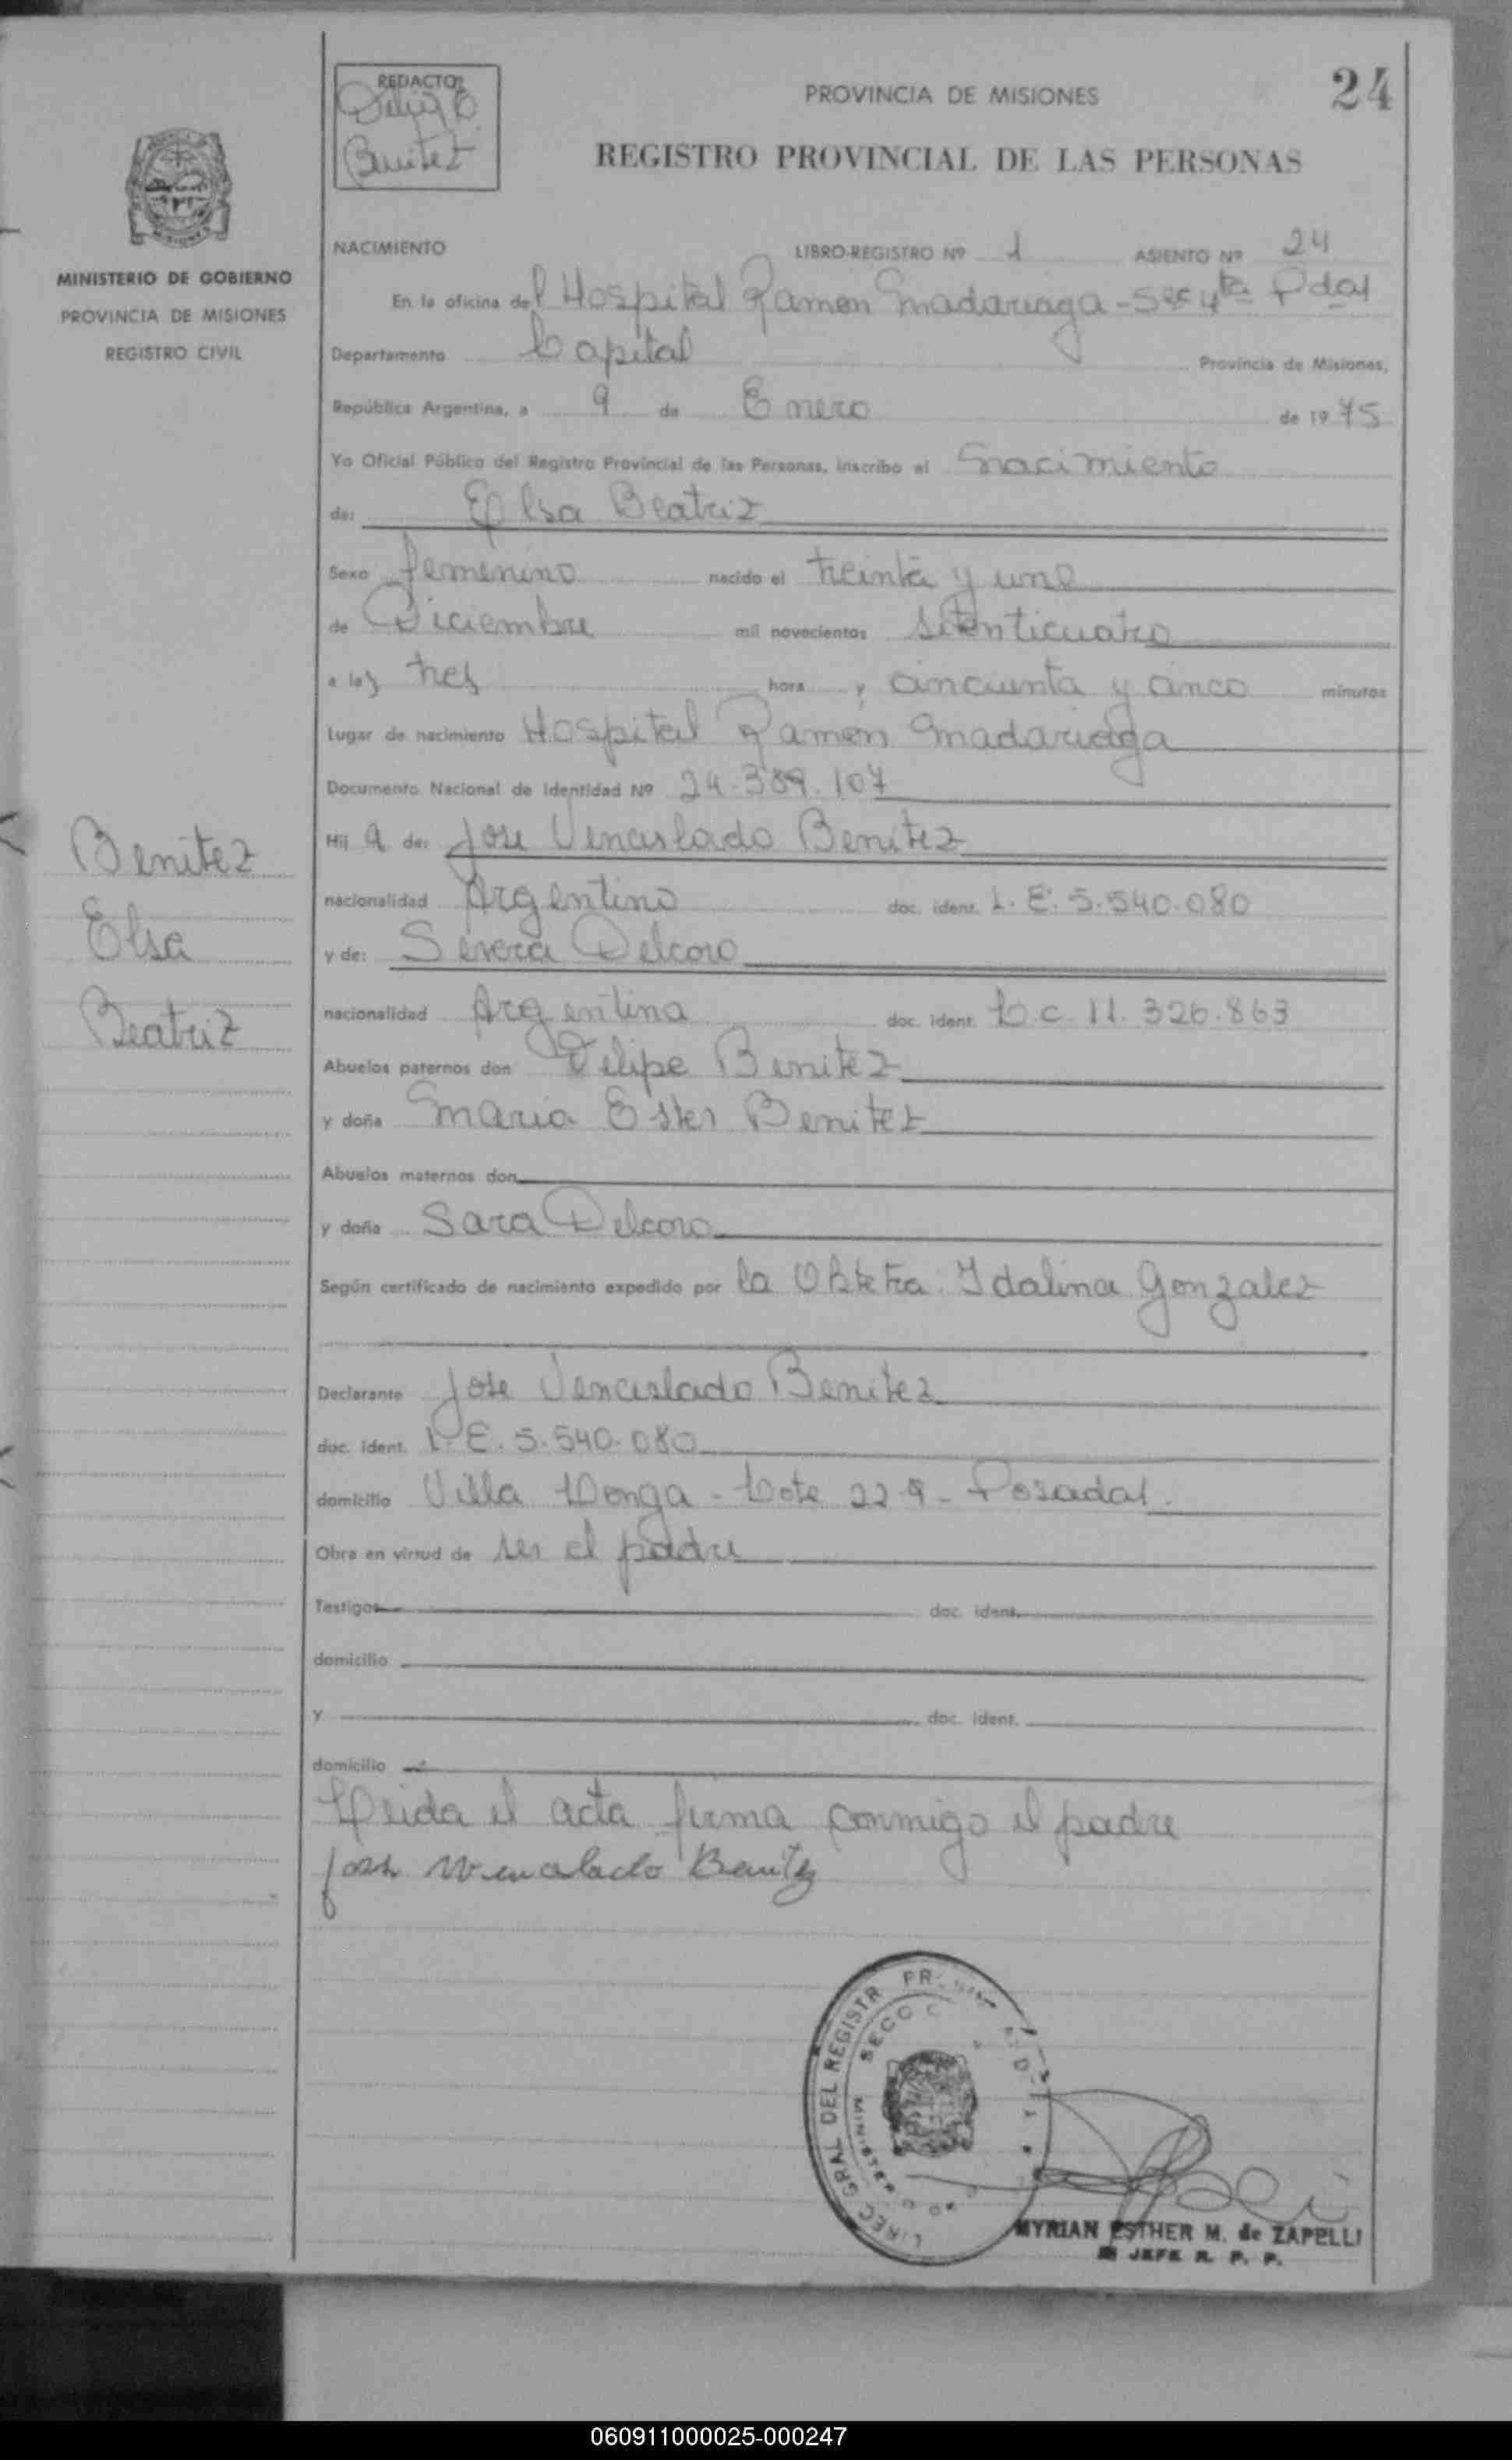 24
REDACTOR
Benitez
PROVINCIA DE MISIONES
REGISTRO PROVINCIAL DE LAS PERSONAS
MINISTERIO DE GOBIERNO
PROVINCIA DE MISIONES
REGISTRO CIVIL
NACIMIENTO LIBRO-REGISTRO Nº 1 ASIENTO Nº 24
En la oficina del Hospital Ramon Madariaga - Sec 4ta Pdas
Departamento Capital Provincia de Misiones,
República Argentina, a 9 de Enero de 1975
Yo Oficial Público del Registro Provincial de las Personas, inscribo el Nacimiento
de: Elsa Beatriz
Sexo femenino nacido el treinta y uno
de Diciembre mil novecientos setenticuatro
a las tres hora y cincuenta y cinco minutos
Lugar de nacimiento Hospital Ramón Madariaga
Documento Nacional de Identidad Nº 24.389.107
Benitez
Elsa
Beatriz
Hij a de: Jose Venceslado Benitez
nacionalidad Argentino doc. ident. L. E. 5.540.080
y de: Severa Delcoro
nacionalidad Argentina doc. ident. L.C. 11.326.863
Abuelos paternos don Felipe Benitez
y doña Maria Ester Benitez
Abuelos maternos don
y doña Sara Delcoro
Según certificado de nacimiento expedido por la Obtetra. Idalina Gonzalez
Declarante Jose Venceslado Benitez
doc. ident. L. E. 5.540.080
domicilio Villa Longa - Lote 229 - Posadas.
Obra en virtud de ser el padre
Testigos doc. ident.
domicilio
y doc. ident.
domicilio
Leida el acta firma conmigo el padre
Jose Wenceslado Benitez
DIREC. GRAL DEL REGISTR
SECC
MYRIAN ESTHER M. de ZAPELLI
JEFE R. P. P.
060911000025-000247